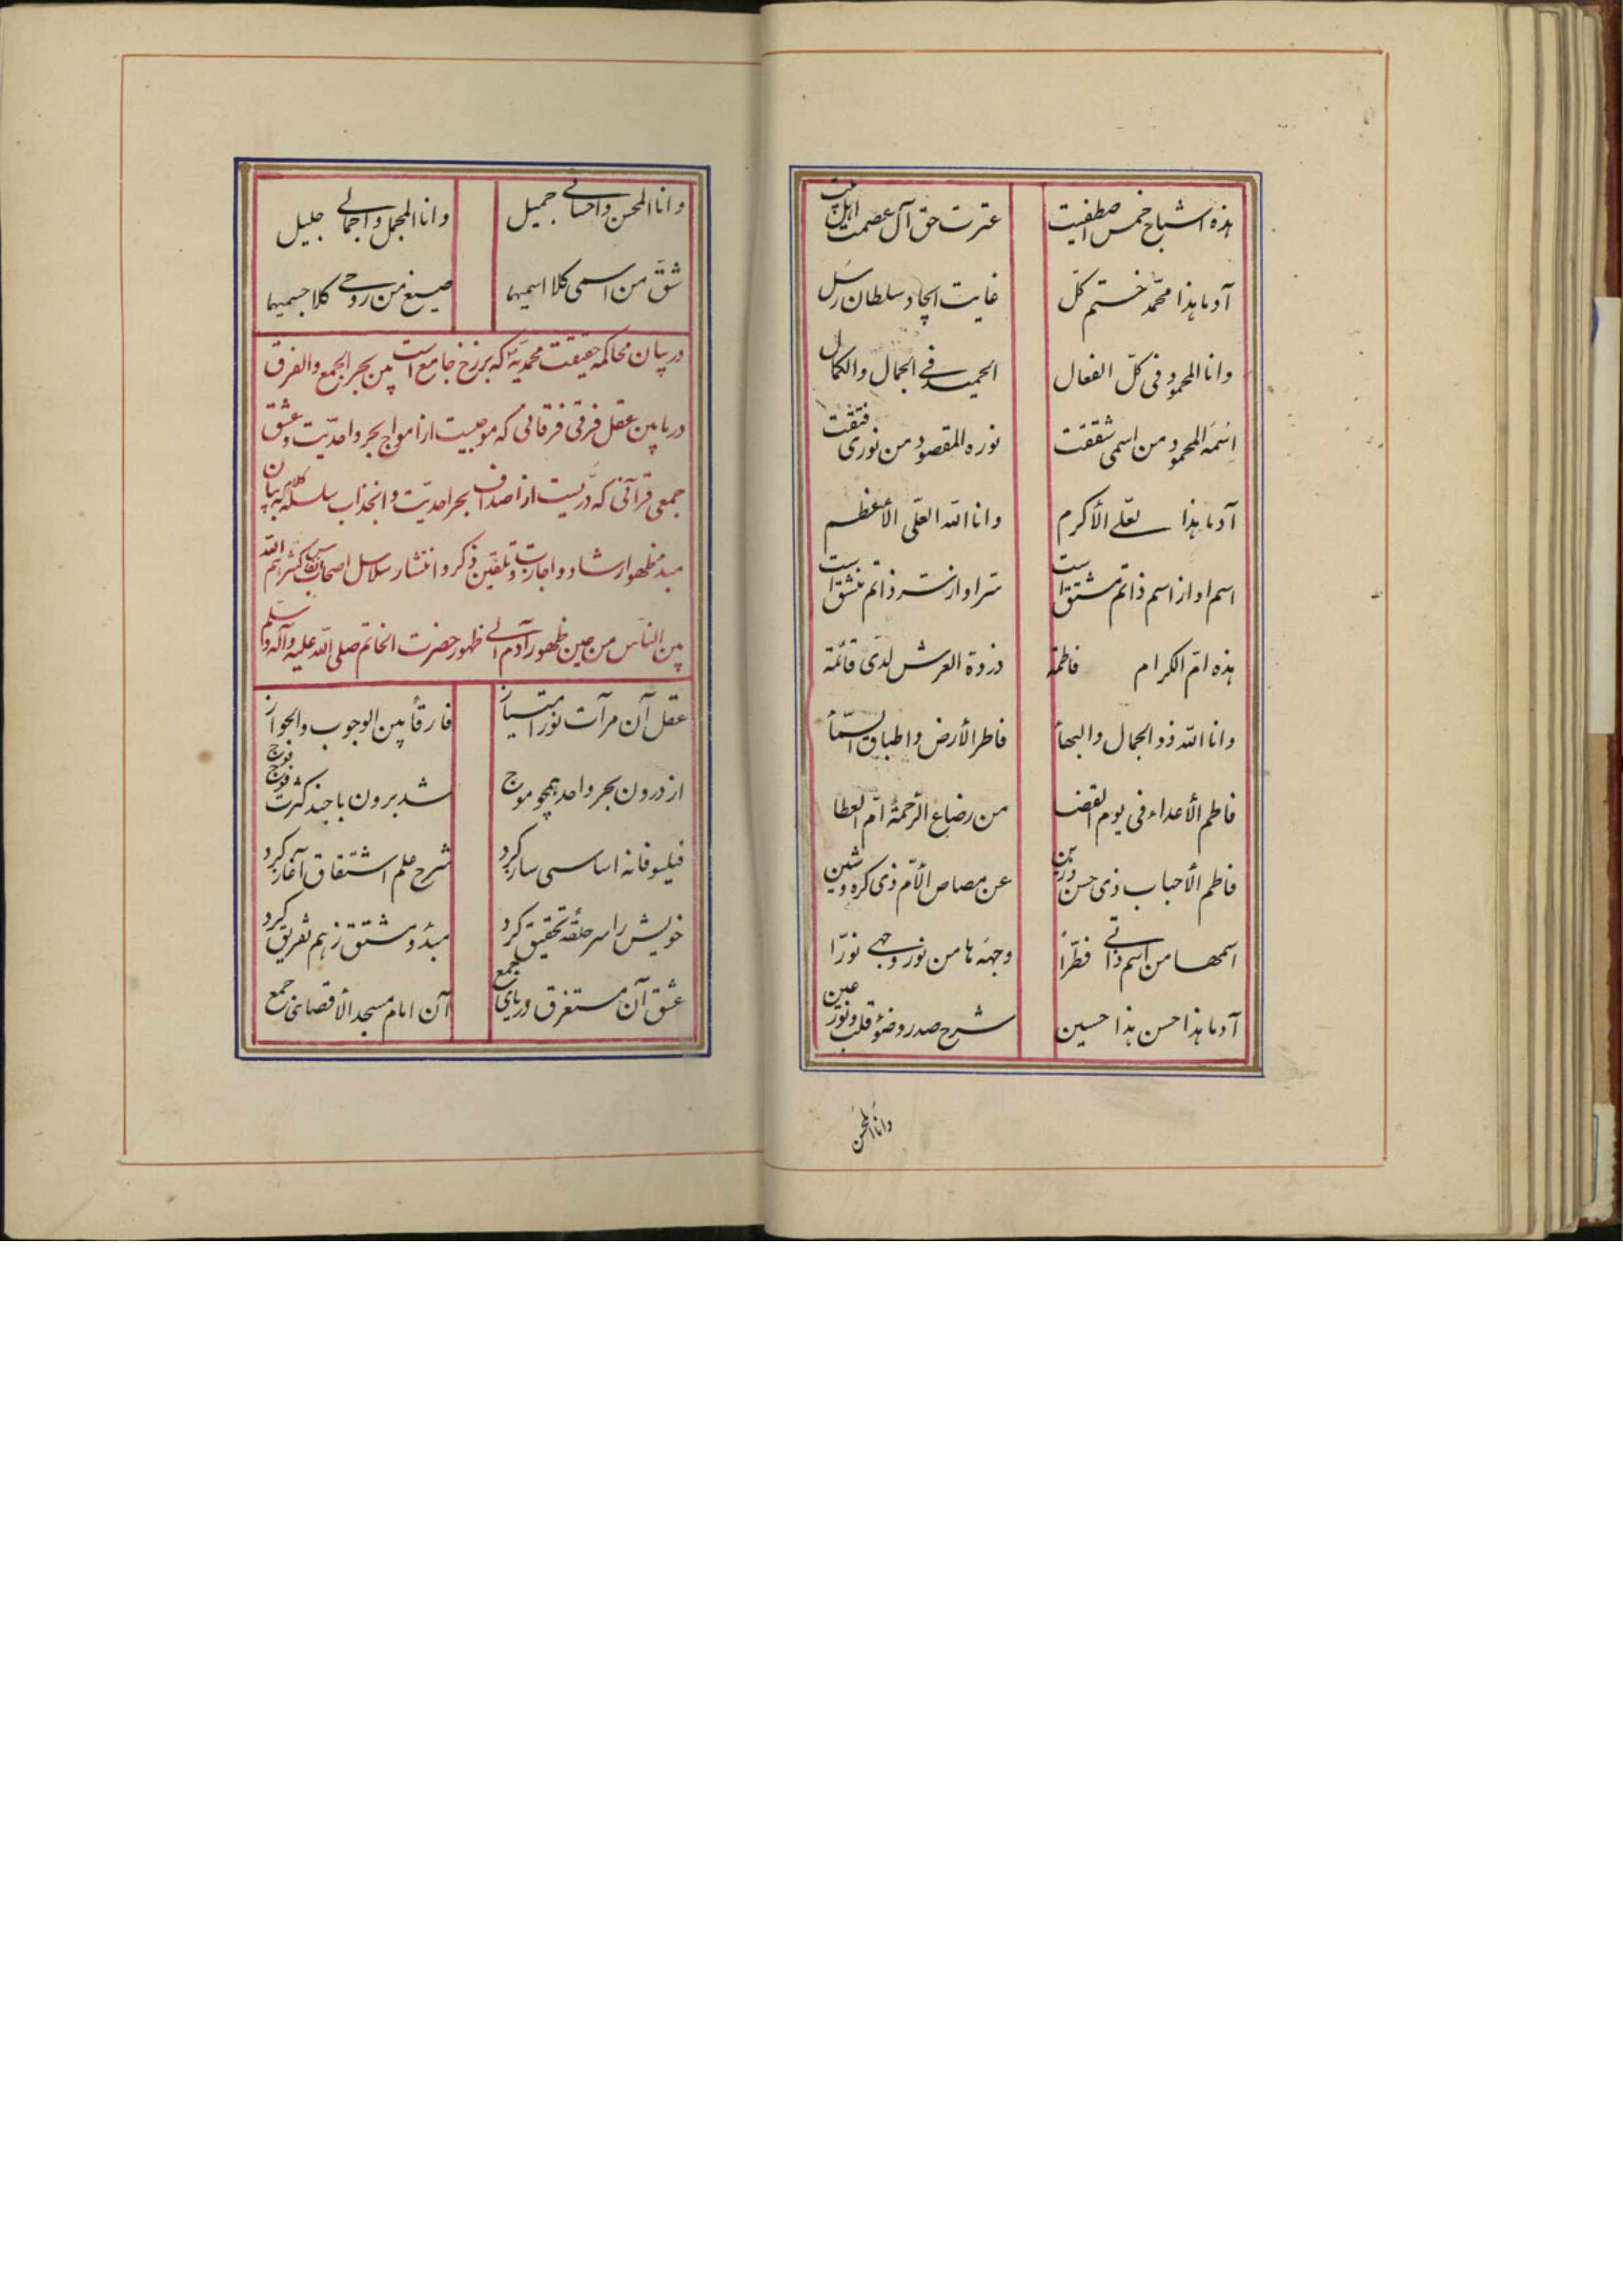 هذه اشباح خمس اصطفیت عترت حق آل عصمت اهل بیت
آدما هذا محمّد ختم کلّ غایت ایجاد سلطان رسل
وانا المحمود فی کلّ الفعال الحمید فی الجمال والکمال
اسمَه المحمود من اسمی شققت نوره المقصود من نوری فتقت
آدما هذا لعلی الأکرم وانا الله العلّی الأعظم
اسم او از اسم ذاتم مشتق است سّر او از سّر ذاتم منشق است
هذه امّ الکرام فاطمة ذروة العرش لدی قائمة
وانا الله ذو الجمال والبهأ فاطر الأرض واطباق السّمأ
فاطم الأعداء فی یوم القضا من رضاع الرّحمة امّ العطا
فاطم الأحباب ذی حسن وزین عن مصاص الأم ذی کره وشین
اسمها من اسم ذاتی فطّراً وجهَه ها من نور وجهی نورّا
آدما هذا حسن هذا حسین شرح صدر وضؤ قلب ونور عین
وانا المحسن
وانا المحسن واحسانی جمیل وانا المجمل واجمالی جلیل
شقّ من اسمی کلا اسمیهما صیغ من روحی کلا جسمیهما
در بیان محاکمه حقیقت محمدیّه که برزخ جامع است بین بحر الجمع والفرق
در مابین عقل فرقی فرقانی که موجیست از امواج بحر واحدیّت وعشق
جمعی قرآنی که درّیست از اصداف بحر احدیّت وانجذاب سلسله کلام به بیان
مبدء ظهور ارشاد واجازت وتلقین ذکر وانتشار سلاسل اصحاب کثّرهم الله
بین النّاس من حین ظهور آدم الی ظهور حضرت الخاتم صلی الله علیه وآله وسلم
عقل آن مرآت نور امتیاز فارقأ بین الوجوب والجواز
از درون بحر واحد همچو موج شد برون با جند کثرت فوج فوج
فیلسوفانه اساسی ساز کرد شرح علم اشتقاق آغاز کرد
خویش را سر حلقهٔ تحقیق کرد مبدٔ ومشتق ز هم تفریق کرد
عشق آن مستغرق دریای جمع آن امام مسجد الأقصای جمع